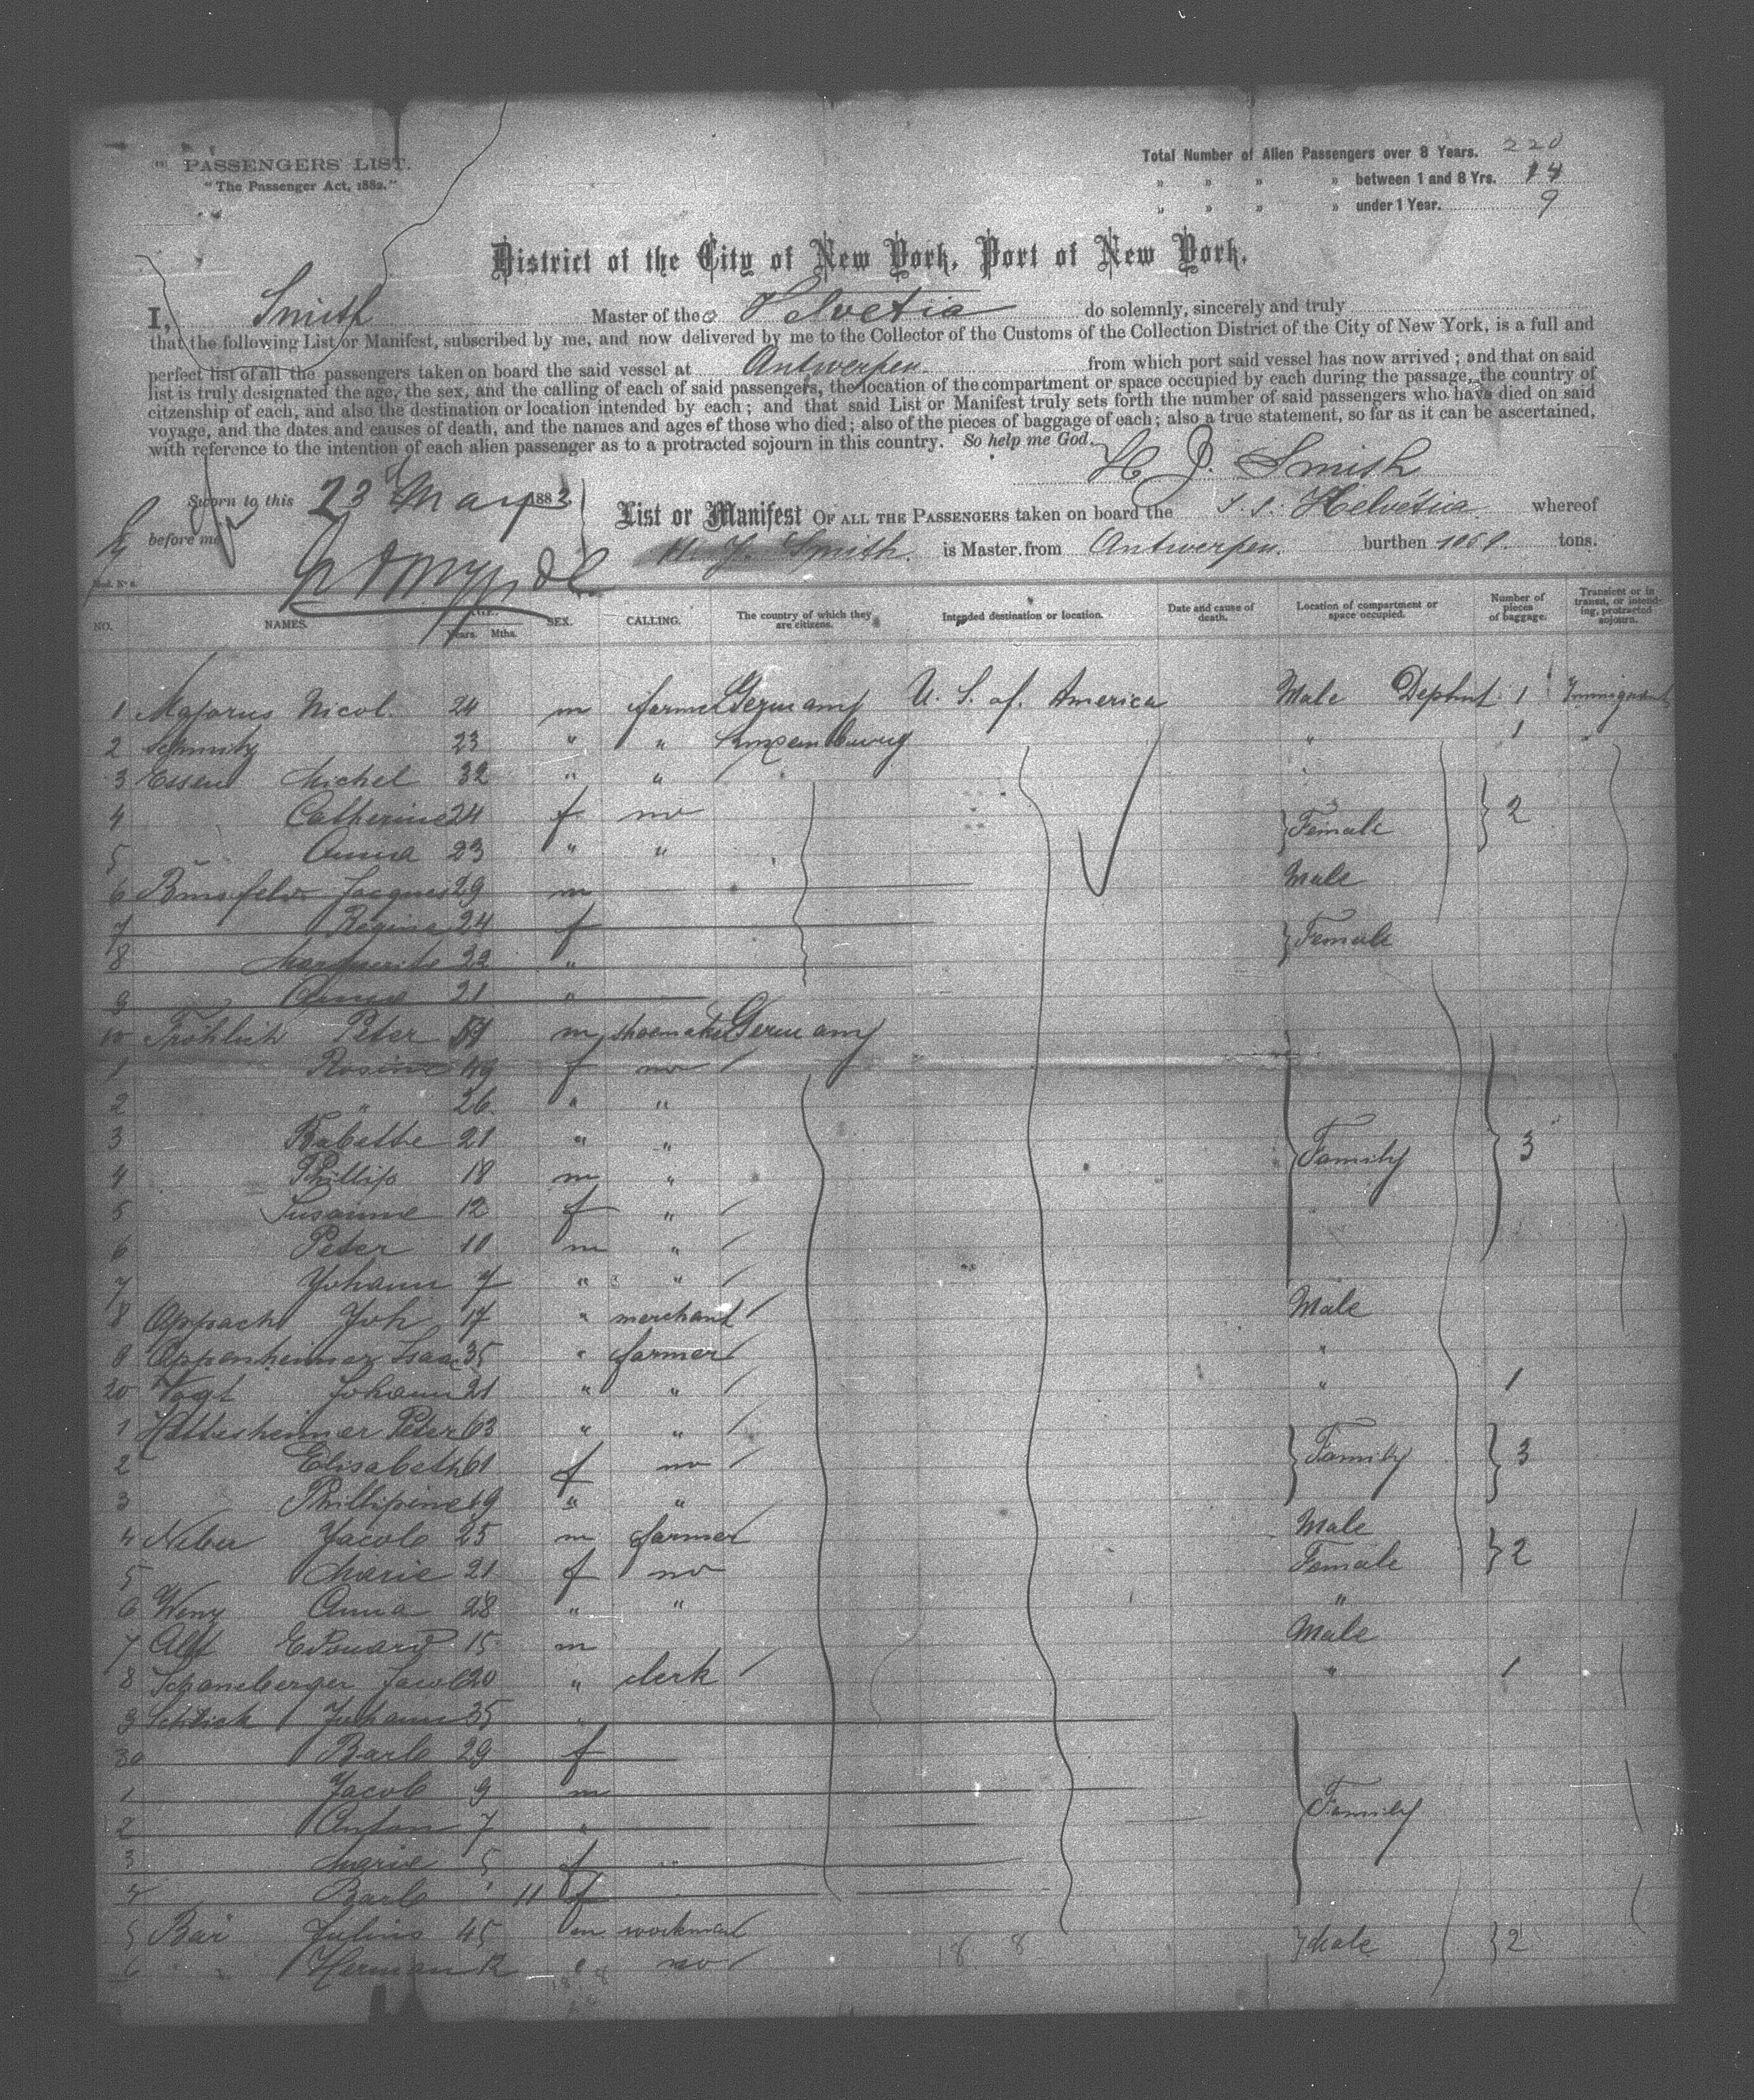 PASSENGERS' LIST.
"The Passenger Act, 1882."
Total Number of Alien Passengers over 8 Years. 220
" " " " between 1 and 8 Yrs. 14
" " " " under 1 Year. 9
District of the City of New York, Port of New York.
I, Smith Master of the Helvetia do solemnly, sincerely and truly
that the following List or Manifest, subscribed by me, and now delivered by me to the Collector of the Customs of the Collection District of the City of New York, is a full and
perfect list of all the passengers taken on board the said vessel at Antwerpen from which port said vessel has now arrived; and that on said
list is truly designated the age, the sex, and the calling of each of said passengers, the location of the compartment or space occupied by each during the passage, the country of
citzenship of each, and also the destination or location intended by each; and that said List or Manifest truly sets forth the number of said passengers who have died on said
voyage, and the dates and causes of death, and the names and ages of those who died; also of the pieces of baggage of each; also a true statement, so far as it can be ascertained,
with reference to the intention of each alien passenger as to a protracted sojourn in this country. So help me God.
H. J. Smith
Sworn to this 23 May 1883
before me
List or Manifest OF ALL THE PASSENGERS taken on board the S. S. Helvetia whereof
H. J. Smith is Master, from Antwerpen. burthen tons.
Mod. No 6.
NO. NAMES. AGE. Years. Mths. SEX. CALLING. The country of which they are citizens. Intended destination or location. Date and cause of death. Location of compartment or space occupied. Number of pieces of baggage. Transient or in transit, or intending, protracted sojourn.
1 Majorus Nicol. 24 m farmer Germany U. S. of America Male Dephnt 1 Immigrant
2 Schmitz 23 " " Luxemburg " 1 "
3 Essen Michel 32 " "
4 Catherine 24 f no Female 2
5 Anna 23 " "
6 Jacques 29 m Male
7 Regina 24 f Female
8 Marguerite 22 "
9 Anna 21 "
10 Fröhlich Peter 51 m shoemaker Germany
1 Rosine 49 f no
2 " 26 " "
3 Babette 21 " "
4 Phillip 18 m " Family 3
5 Susanne 12 f "
6 Peter 10 m "
7 Johann 7 " "
8 Appach Joh 17 " merchant Male
9 Oppenheimer Isaac 35 " farmer "
20 Vogt Johann 21 " " " 1
1 Hattesheimer Peter 63 " "
2 Elisabeth 61 f no Family 3
3 Phillipine 19 " "
4 Neber Jacob 25 m farmer Male
5 Marie 21 f no Female 2
6 Weny Anna 28 " " "
7 Alt Edouard 15 m Male
8 Schaneberger Jacob 20 " clerk " 1
9 Schlick Johann 35 "
30 Barb 29 f
1 Jacob 9 m
2 Anton 7 " Family
3 Marie 5 f
4 Barb 11 f
5 Bär Julius 45 m workman Male 2
6 " Herman 12 " no